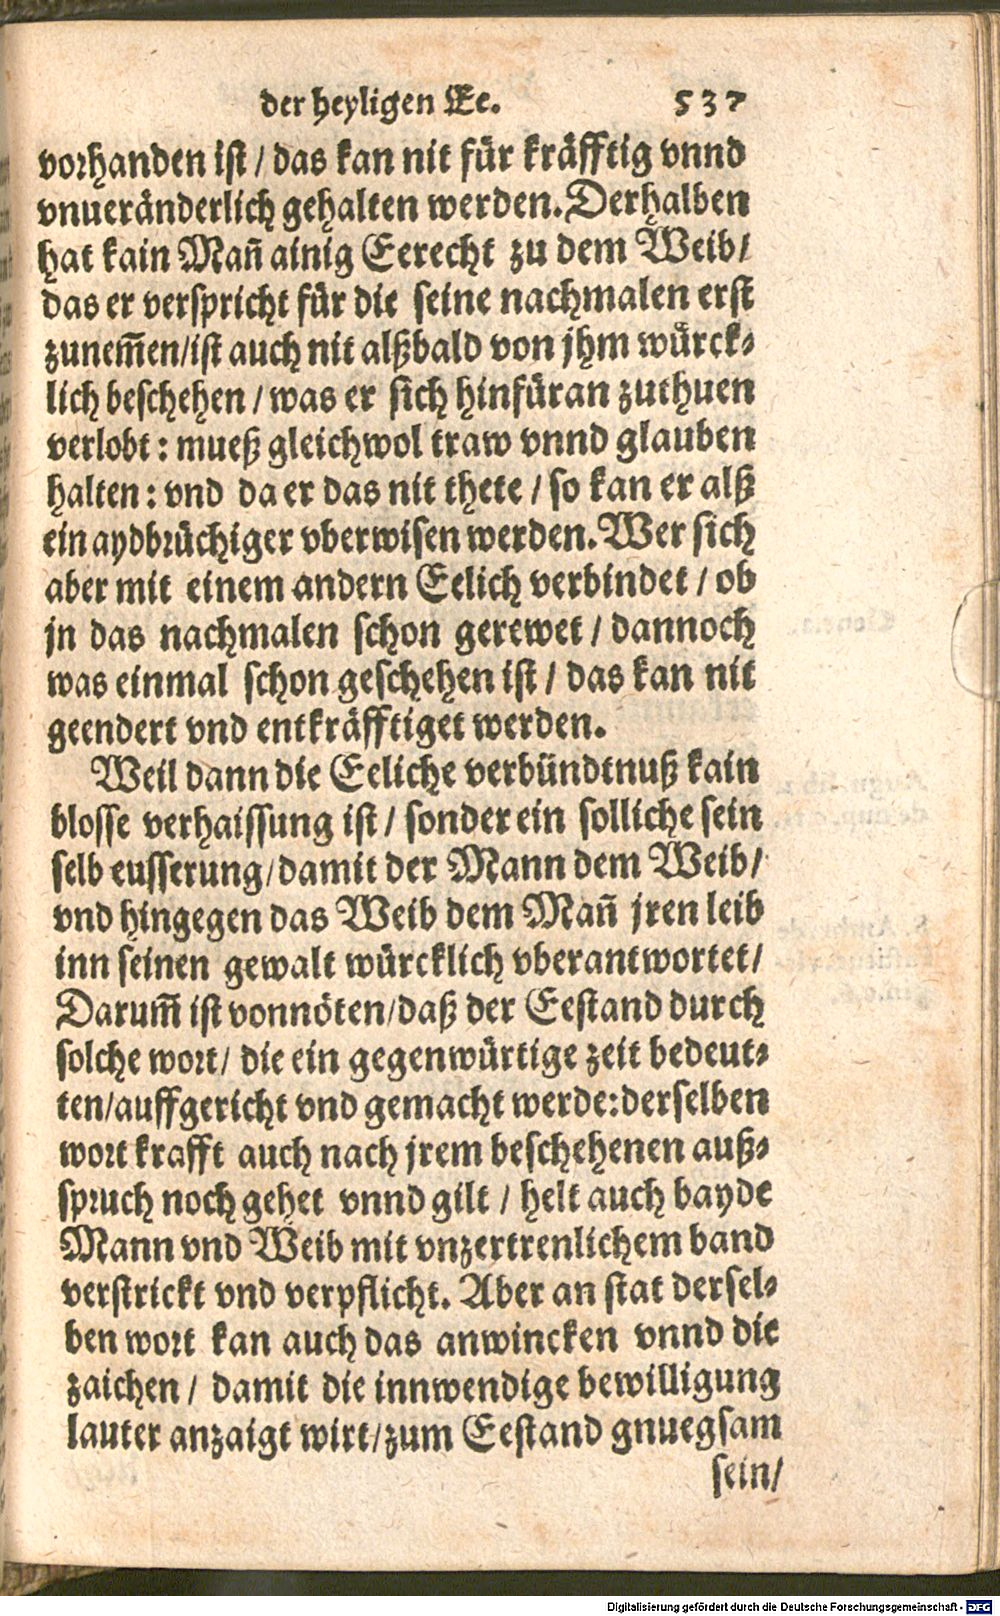 der heyligen Ee. 537
vorhanden ist / das kan nit für kräfftig vnnd
vnueränderlich gehalten werden. Derhalben
hat kain Mañ ainig Eerecht zu dem Weib /
das er verspricht für die seine nachmalen erst
zunem̃en / ist auch nit alßbald von jhm würck⸗
lich beschehen / was er sich hinfüran zuthuen
verlobt : mueß gleichwol traw vnnd glauben
halten : vnd da er das nit thete / so kan er alß
ein aydbrüchiger vberwisen werden. Wer sich
aber mit einem andern Eelich verbindet / ob
jn das nachmalen schon gerewet / dannoch
was einmal schon geschehen ist / das kan nit
geendert vnd entkräfftiget werden.
Weil dann die Eeliche verbündtnuß kain
blosse verhaissung ist / sonder ein solliche sein
selb eusserung / damit der Mann dem Weib /
vnd hingegen das Weib dem Mañ jren leib
inn seinen gewalt würcklich vberantwortet /
Darum̃ ist vonnöten / daß der Eestand durch
solche wort / die ein gegenwürtige zeit bedeut⸗
ten / auffgericht vnd gemacht werde : derselben
wort krafft auch nach jrem beschehenen auß⸗
spruch noch gehet vnnd gilt / helt auch bayde
Mann vnd Weib mit vnzertrenlichem band
verstrickt vnd verpflicht. Aber an stat dersel⸗
ben wort kan auch das anwincken vnnd die
zaichen / damit die innwendige bewilligung
lauter anzaigt wirt / zum Eestand gnuegsam
sein /
Digitalisierung gefördert durch die Deutsche Forschungsgemeinschaft - DFG